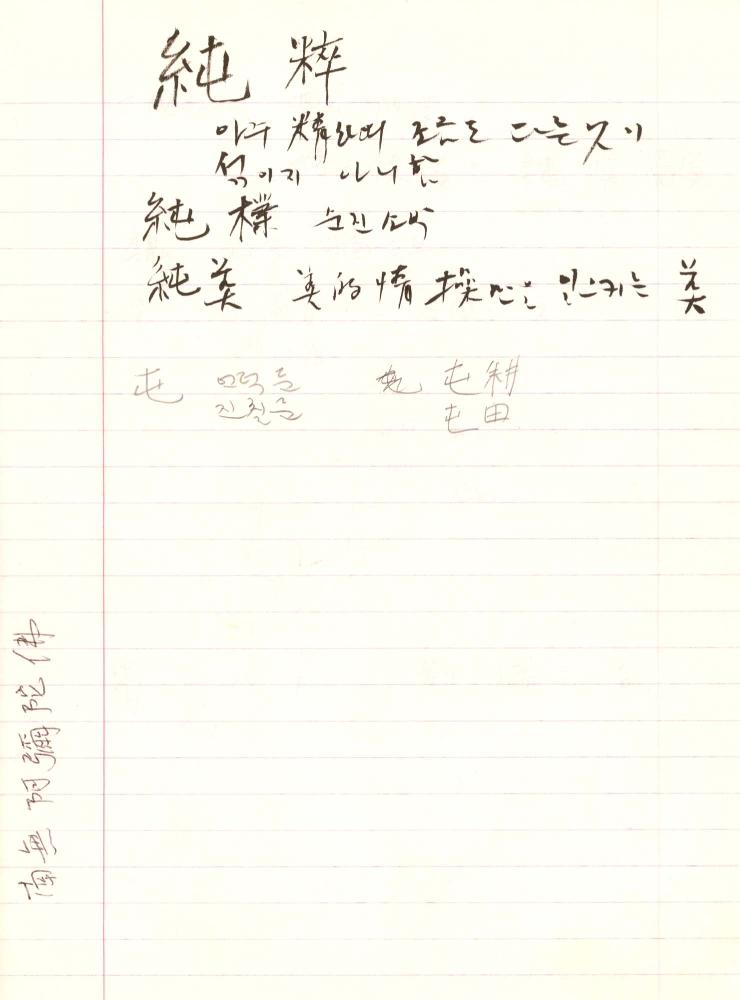 純 粹
아주 精하며 조금도 다른 것이
섞이지 아니함
純 樸 순진 소박
純美 美的 情操만을 일으키는 美
屯 언덕둔 屯耕
진칠둔 屯田
南無阿彌陀佛